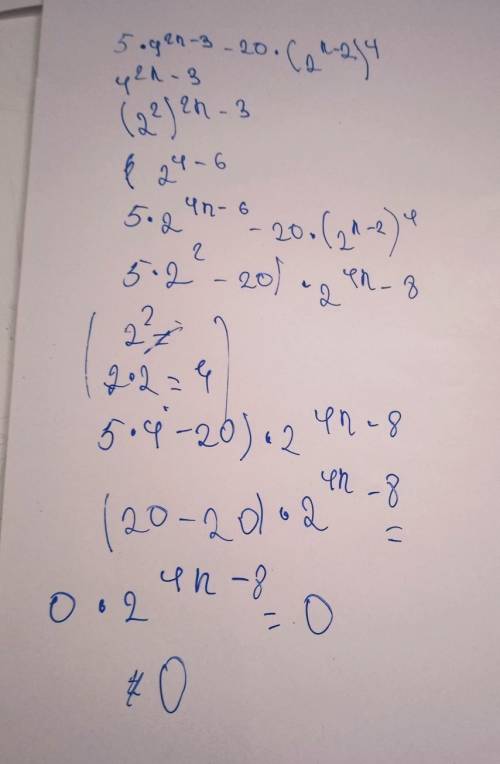 5·4^{2n-3} - 20·(2^{n-2})^4
4^{2n-3}
(2^2)^{2n-3}
2^{4-6}
5·2^{4n-6} - 20·(2^{n-2})^4
5·2^2 - 20)·2^{4n-8}
(2^2=
2·2=4)
5·4-20)·2^{4n-8}
(20-20)·2^{4n-8}=
0·2^{4n-8}=0
0